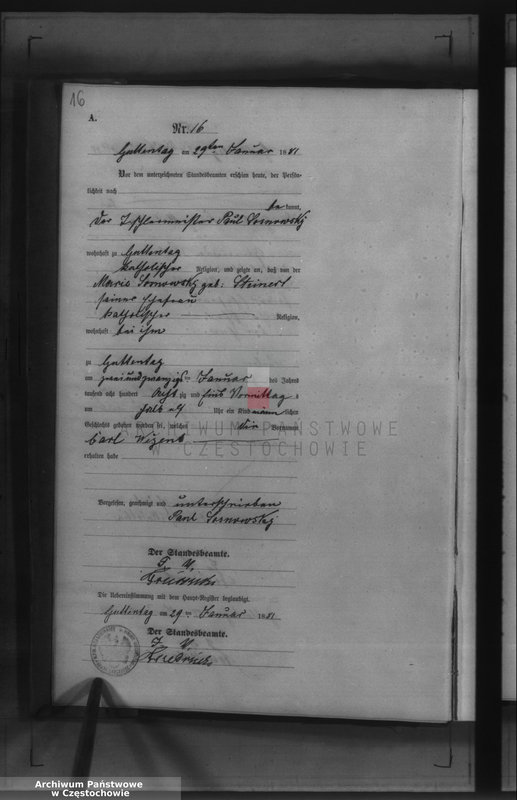 16
A.
Nr. 16
Guttentag am 29ten Januar 1881
Vor dem unterzeichneten Standesbeamten erschien heute, der Persön-
lichkeit nach
be kannt,
der Tischlermeister Paul Sornowsky
wohnhaft zu Guttentag
katholischer Religion, und zeigte an, daß von der
Marie Sornowsky geb. Steinert
seiner Ehefrau
katholischer Religion,
wohnhaft bei ihm
zu Guttentag
am zwei und zwanzigsten Januar des Jahres
tausend acht hundert acht zig und eins Vormittag s
um halb elf Uhr ein Kind männ lichen
Geschlechts geboren worden sei, welches die Vornamen
Carl
erhalten habe
Vorgelesen, genehmigt und unterschrieben
Paul Sornowsky
Der Standesbeamte.
I. V.
Die Uebereinstimmung mit dem Haupt-Register beglaubigt.
Guttentag am 29 ten Januar 1881
Der Standesbeamte.
I. V.
ARCHIWUM PAŃSTWOWE
W CZĘSTOCHOWIE
Archiwum Państwowe
w Częstochowie